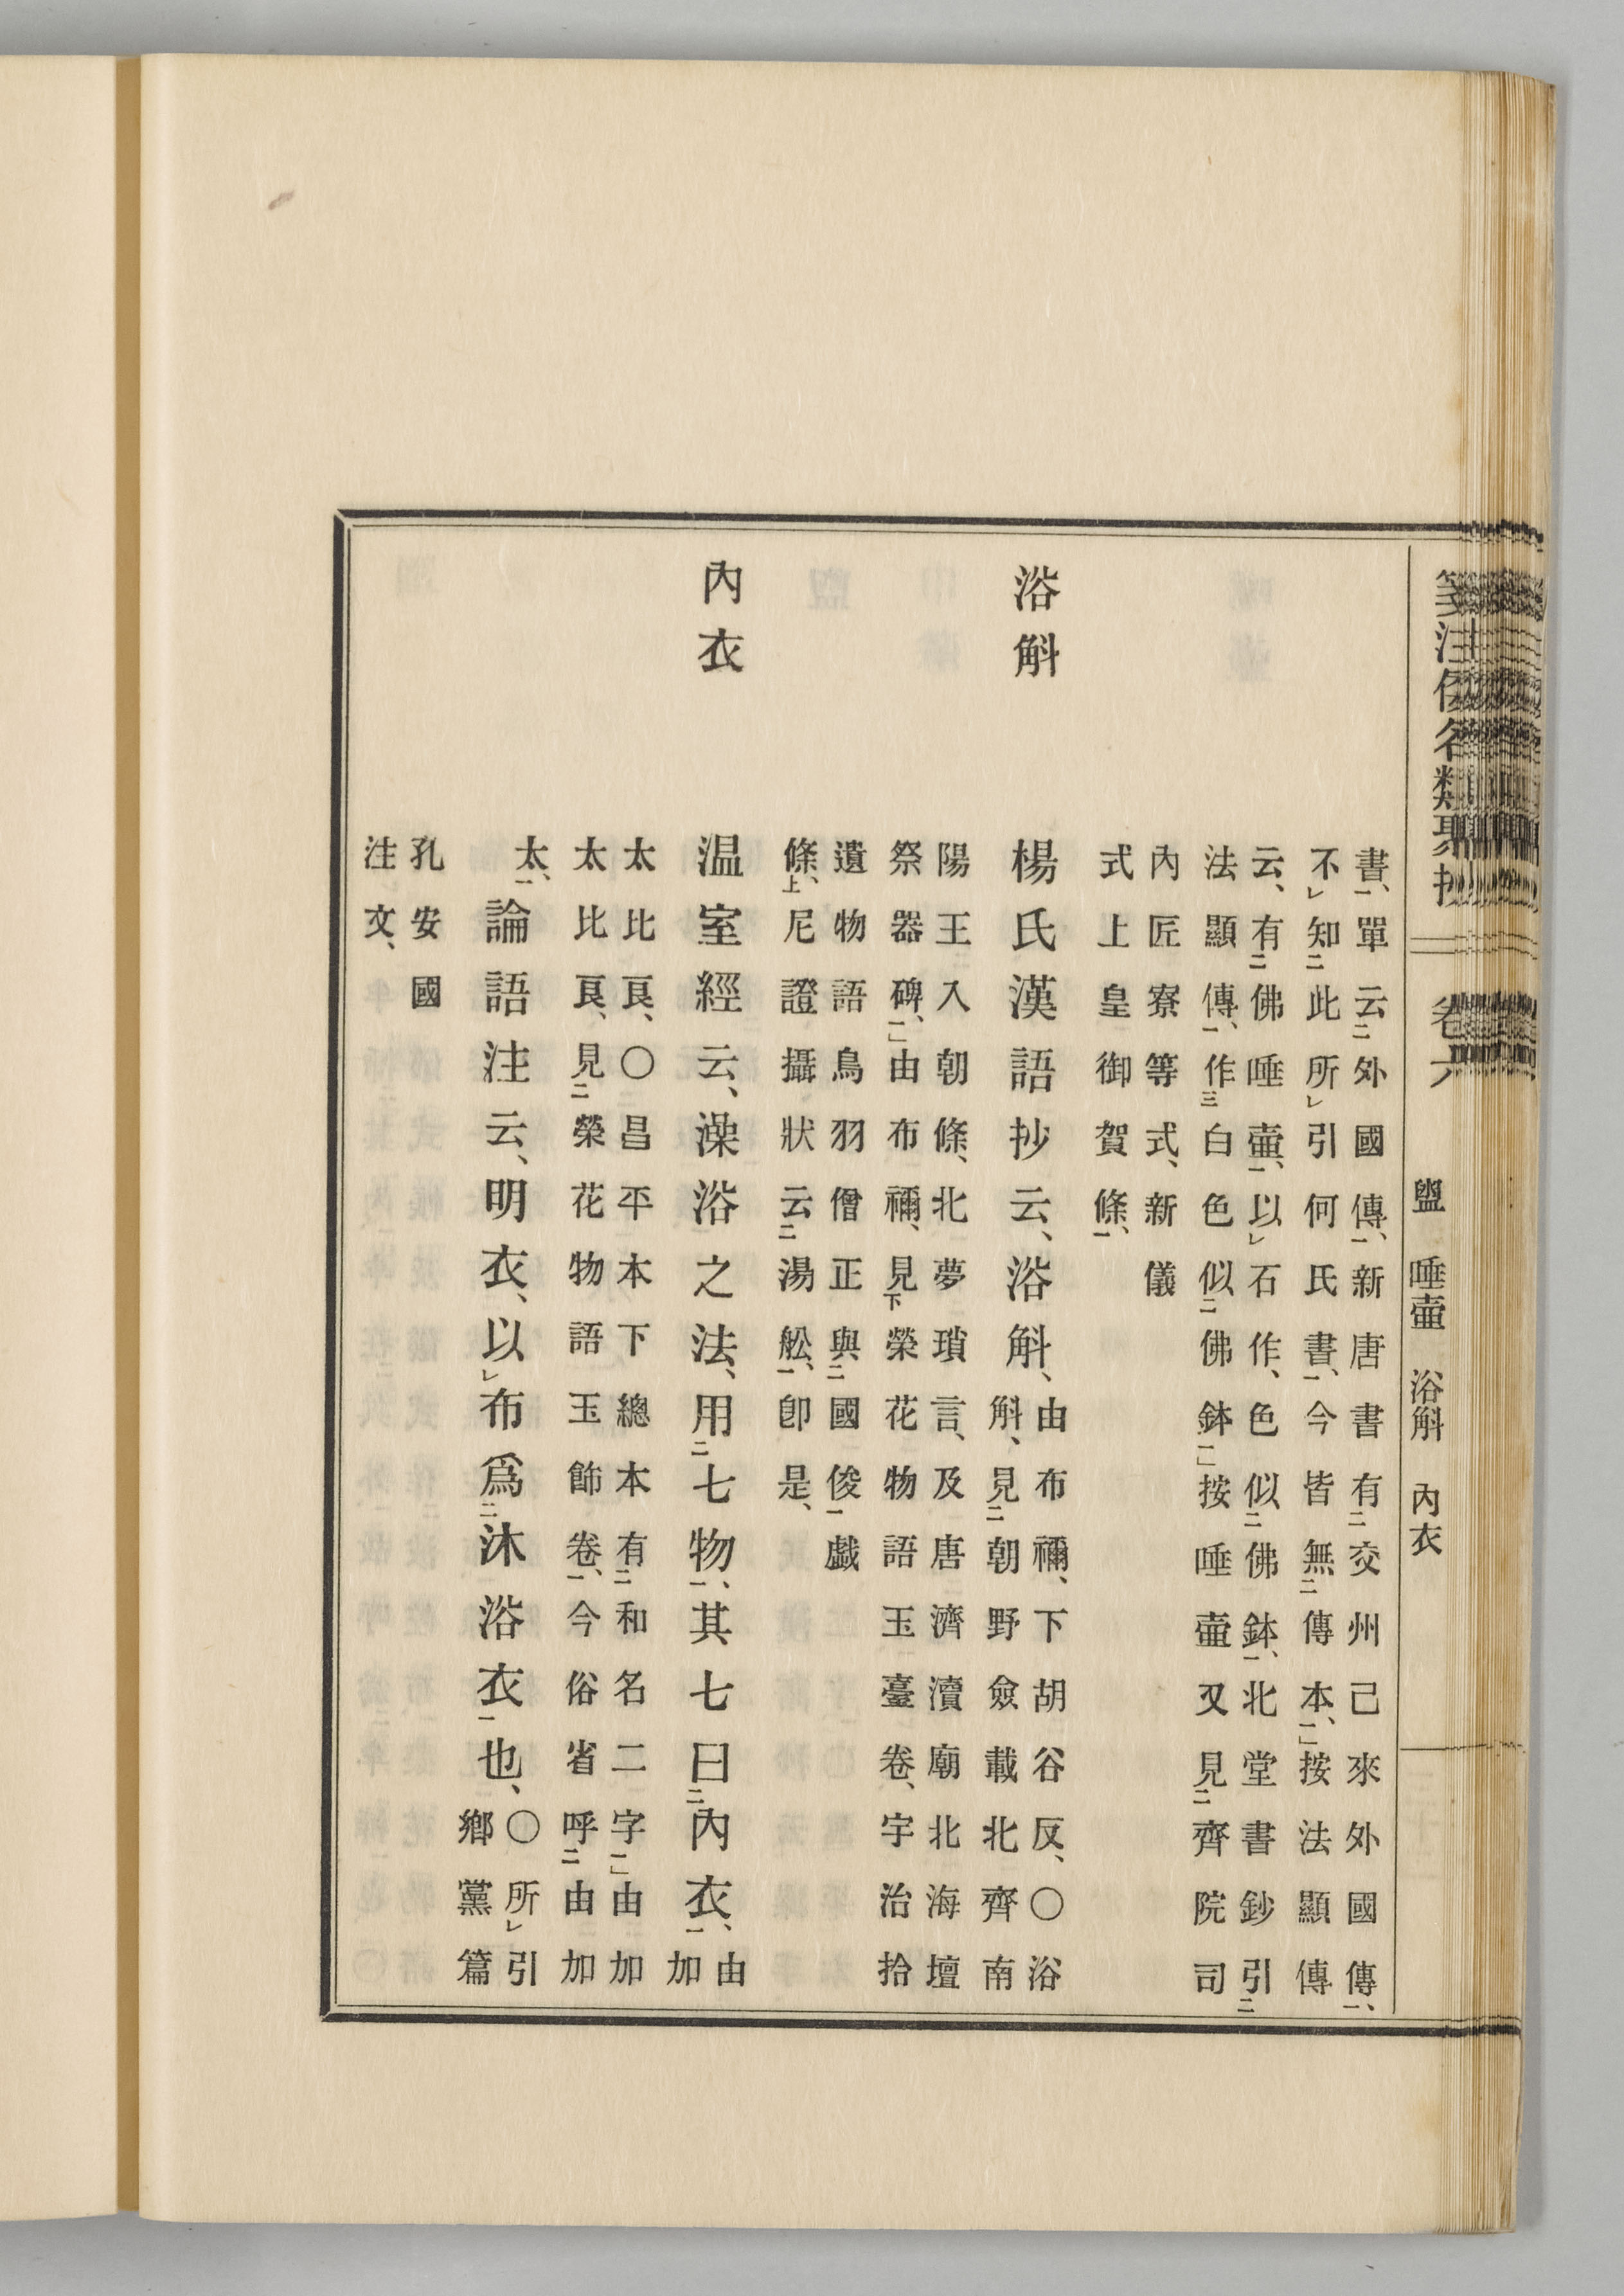 箋注倭名類聚抄 卷六 盥 唾壷 浴斛 內衣
書、單云外國傳、新唐書有交州己來外國傳、
不知此所引何氏書、今皆無傳本、按法顯傳
云、有佛唾壷、以石作、色似佛鉢、北堂書鈔引
法顯傳、作白色似佛鉢按唾壷又見齊院司
內匠寮等式、新儀
式上皇御賀條、
浴斛
楊氏漢語抄云、浴斛、
由布禰、下胡谷反、〇浴
斛、見朝野僉載北齊南
陽王入朝條、北夢瑣言、及唐濟瀆廟北海壇
祭器碑、由布禰、見榮花物語玉臺卷、宇治拾
遺物語鳥羽僧正與國俊戯
條、尼證攝狀云湯舩、卽是、
內衣
温室經云、澡浴之法、用七物、其七曰內衣、
由
加
太比良、〇昌平本下總本有和名二字由加
太比良、見榮花物語玉飾卷、今俗省呼由加
太、
論語注云、明衣、以布爲沐浴衣也、
〇所引
鄉黨篇
孔安國
注文、